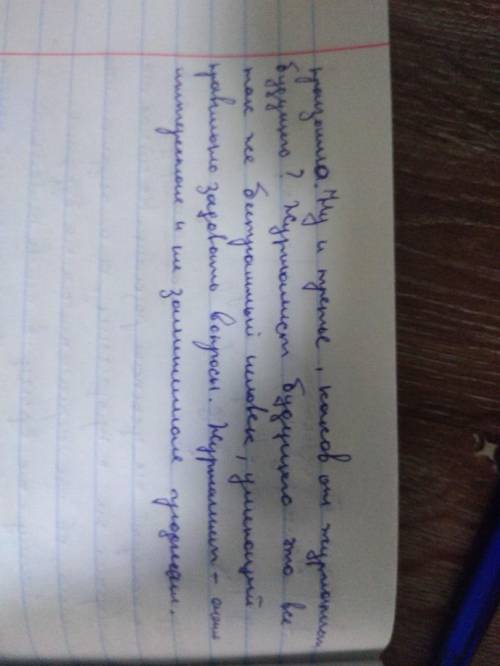 произошло. Ну и третье, каков он журналист
будущего? Журналист будущего это все
так же бесстрашный человек, умеющий
правильно задавать вопросы. Журналист - очень
интересная и не заменимая профессия.